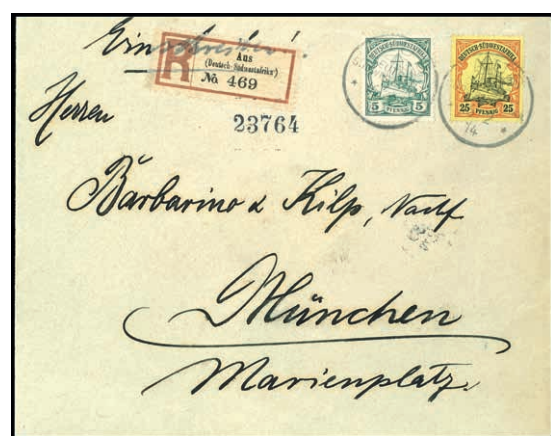 Einschreiben!
R
Aus
(Deutsch-Südwestafrika)
No 469
23764
DEUTSCH-SÜDWESTAFRIKA
5 PFENNIG 5
DEUTSCH-SÜDWESTAFRIKA
25 PFENNIG 25
14
Herren
Barbarino & Kilp, Nachf
München
Marienplatz.